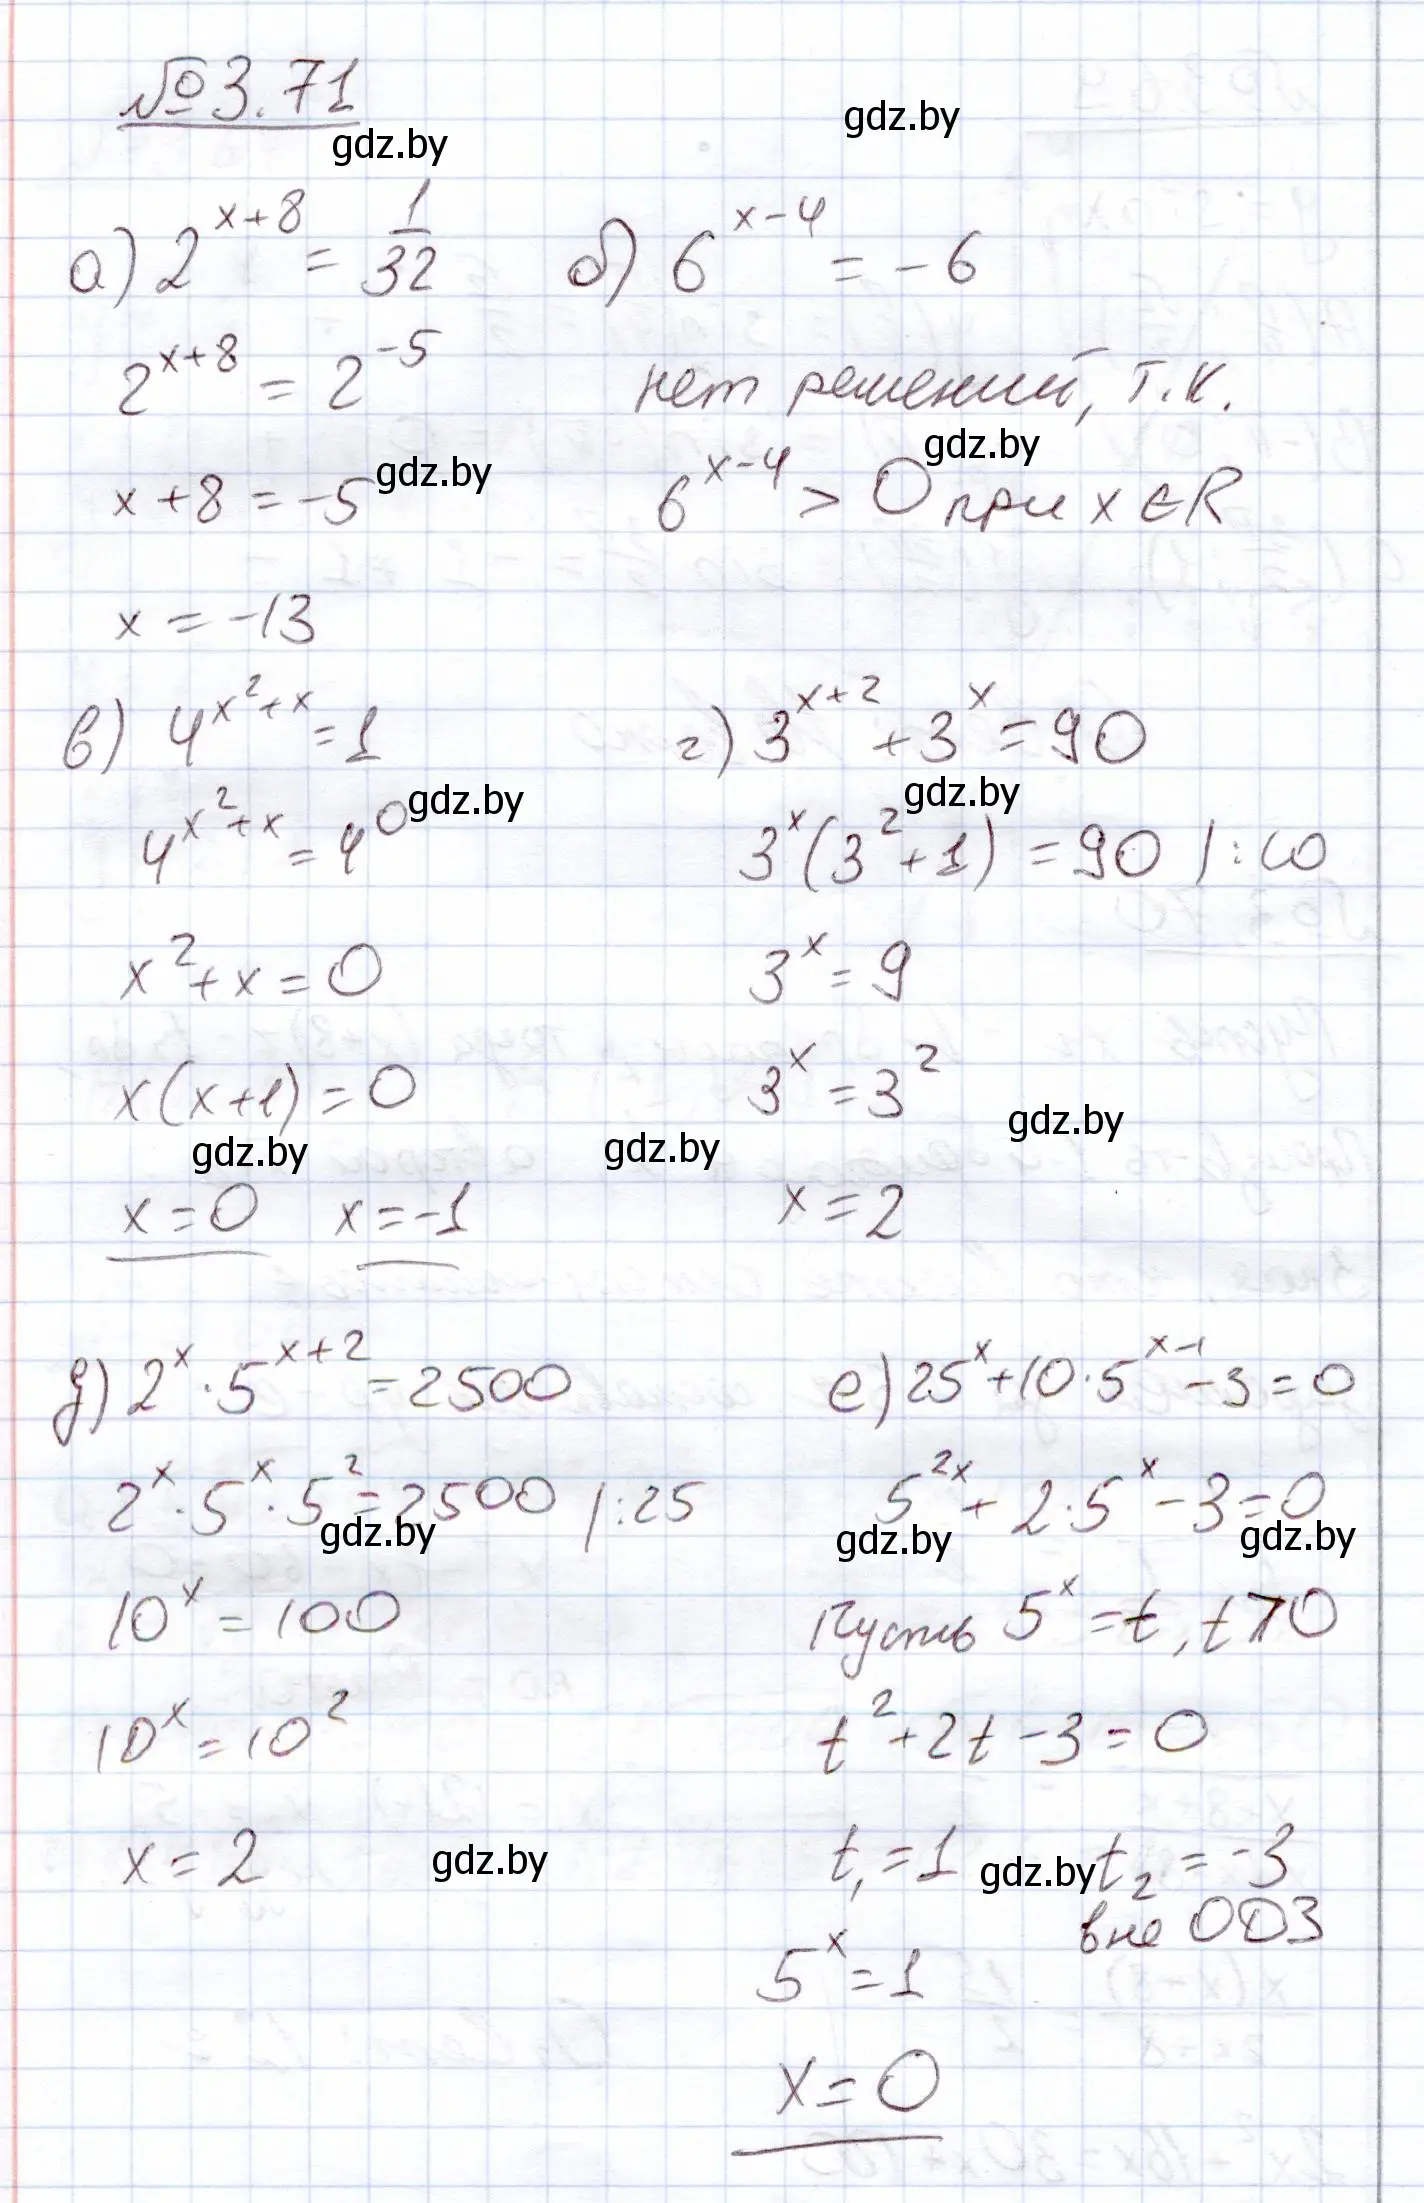 №3.71
gdz.by
gdz.by
а) 2^(x+8) = 1/32
б) 6^(x-4) = -6
2^(x+8) = 2^(-5)
нет решений, т.к.
gdz.by
x+8 = -5
gdz.by
6^(x-4) > 0 при x ∈ R
x = -13
в) 4^(x²+x) = 1
г) 3^(x+2) + 3^x = 90
gdz.by
gdz.by
4^(x²+x) = 4^0
3^x (3²+1) = 90 | :10
x²+x = 0
3^x = 9
x(x+1) = 0
3^x = 3²
gdz.by
gdz.by
gdz.by
x = 0 x = -1
x = 2
д) 2^x · 5^(x+2) = 2500
е) 25^x + 10·5^(x-1) - 3 = 0
2^x · 5^x · 5² = 2500 | :25
5^(2x) + 2·5^x - 3 = 0
gdz.by
gdz.by
gdz.by
10^x = 100
Пусть 5^x = t, t > 0
10^x = 10²
t² + 2t - 3 = 0
x = 2
gdz.by
t₁ = 1
gdz.by
t₂ = -3
вне ОДЗ
5^x = 1
x = 0